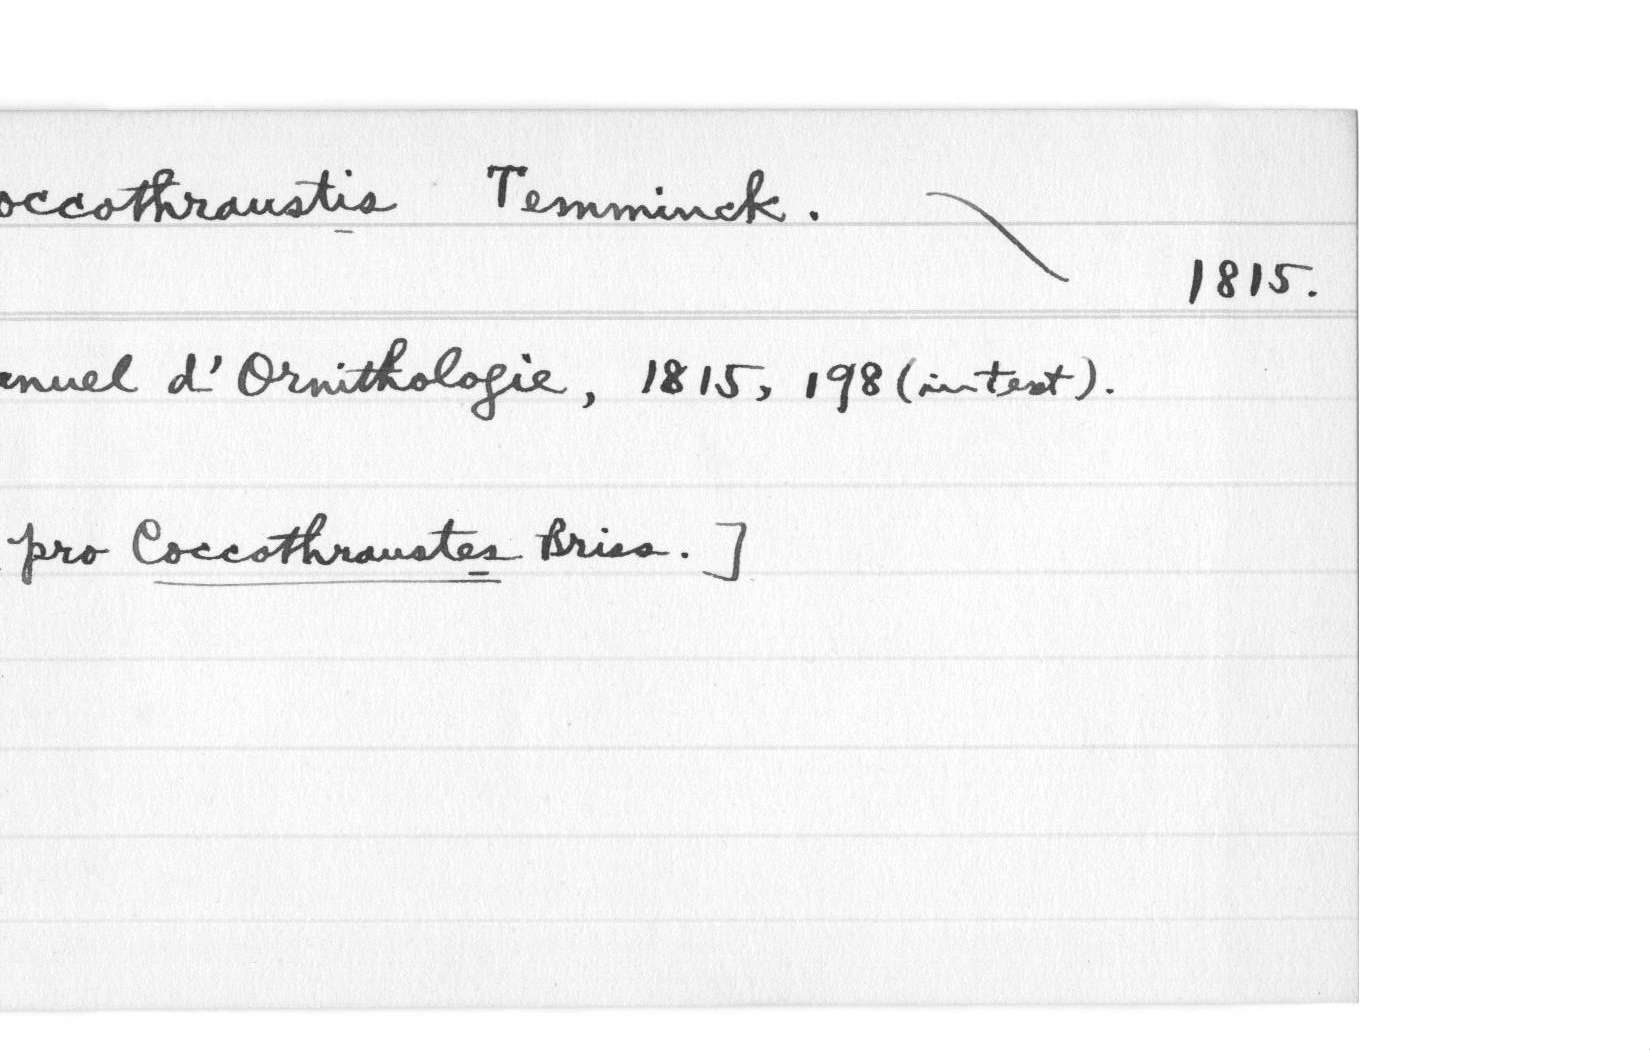 occothraustis Temminck.
1815.
anuel d'Ornithologie, 1815, 198 (in text).
pro Coccothraustes Briss.]